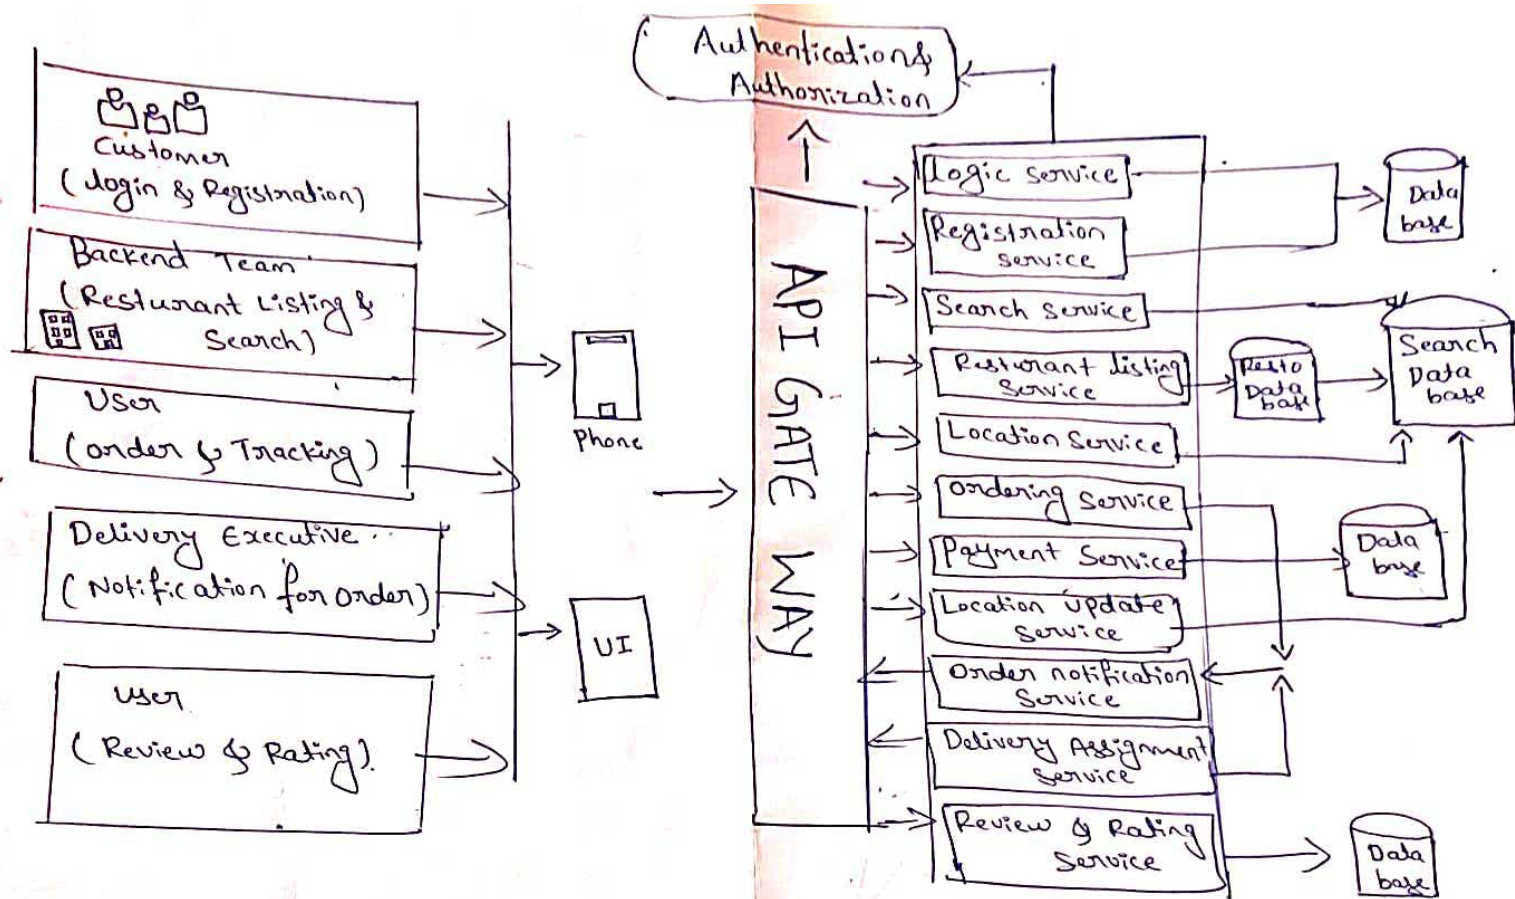 Authentication &
Authorization
Customer
(login & Registration)
Backend Team
(Resturant Listing &
Search)
User
(order & Tracking)
Delivery Executive
(Notification for order)
User
(Review & Rating)
Phone
UI
API GATE WAY
Logic service
Registration
service
Search Service
Resturant listing
Service
Location Service
Ordering Service
Payment Service
Location Update
Service
Order notification
Service
Delivery Assignment
Service
Review & Rating
Service
Data
base
Resto
Data
base
Search
Data
base
Data
base
Data
base